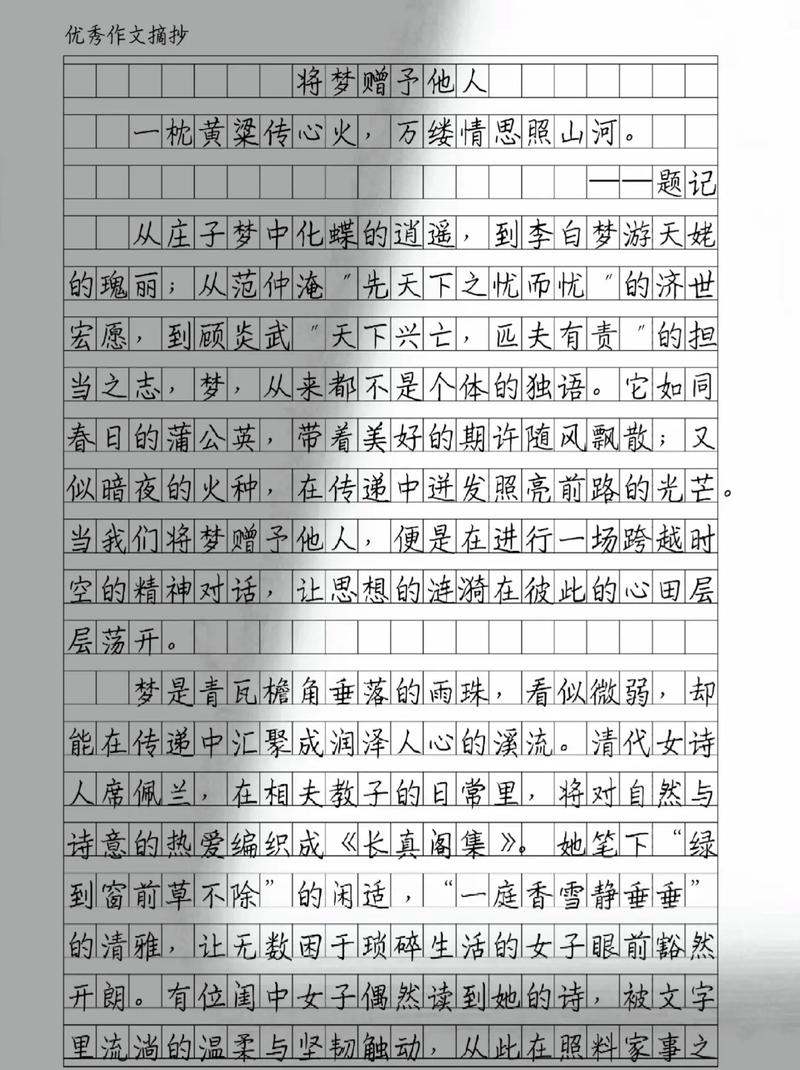 优秀作文摘抄
将梦赠予他人
一枕黄粱传心火，万缕情思照山河。
——题记
从庄子梦中化蝶的逍遥，到李白梦游天姥
的瑰丽；从范仲淹"先天下之忧而忧"的济世
宏愿，到顾炎武"天下兴亡，匹夫有责"的担
当之志，梦，从来都不是个体的独语。它如同
春日的蒲公英，带着美好的期许随风飘散；又
似暗夜的火种，在传递中迸发照亮前路的光芒。
当我们将梦赠予他人，便是在进行一场跨越时
空的精神对话，让思想的涟漪在彼此的心田层
层荡开。
梦是青瓦檐角垂落的雨珠，看似微弱，却
能在传递中汇聚成润泽人心的溪流。清代女诗
人席佩兰，在相夫教子的日常里，将对自然与
诗意的热爱编织成《长真阁集》。她笔下“绿
到窗前草不除”的闲适，“一庭香雪静垂垂”
的清雅，让无数困于琐碎生活的女子眼前豁然
开朗。有位闺中女子偶然读到她的诗，被文字
里流淌的温柔与坚韧触动，从此在照料家事之